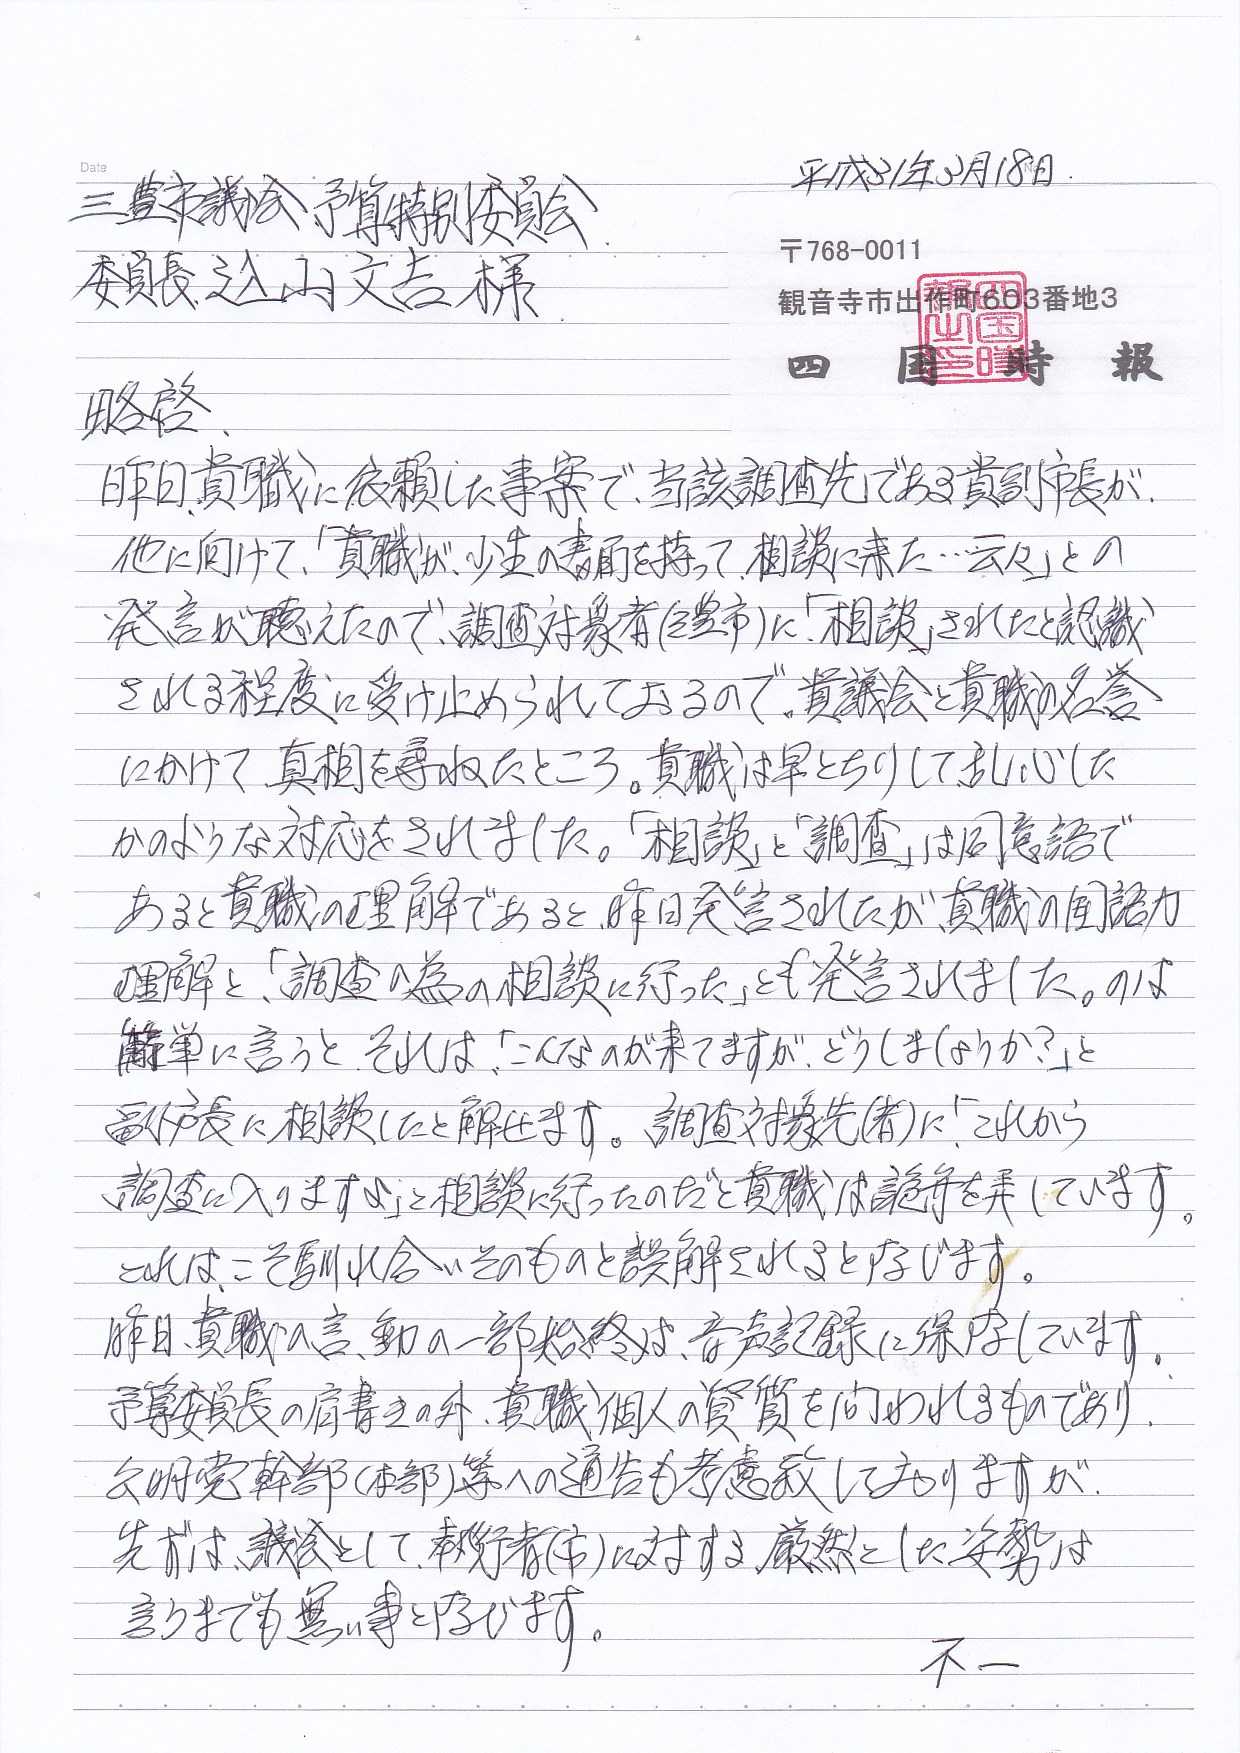 Date
平成31年3月18日.
三豊市議会 予算特別委員会
〒768-0011
委員長、込山文吉 様
観音寺市出作町603番地3
四国時報
略啓、
昨日、貴職に依頼した事案で、当該調査先である貴副市長が、
他に向けて、「貴職が、小生の書面を持って、相談に来た…云々」との
発言が聴えたので、調査対象者(三豊市)に「相談」されたと認識
される程度に受け止められておるので、貴議会と貴職の名誉
にかけて、真相を尋ねたところ。貴職は早とちりして乱心した
かのような対応をされました。「相談」と「調査」は同意語で
あると貴職の理解であると、昨日発言されたが、貴職の国語力
理解と、「調査の為の相談に行った」とも発言されました。のは
簡単に言うと、それは、「こんなのが来てますが、どうしましょうか?」と
副市長に相談したと解せます。調査対象先(者)に「これから
調査に入りますよ」と相談に行ったのだと貴職は詭弁を弄しています。
これは、こそ馴れ合いそのものと誤解されると存じます。
昨日、貴職の言、動の一部始終は、音声記録に保存しています。
予算委員長の肩書きの外、貴職個人の資質を問われるものであり、
公明党幹部(本部)等への通告も考慮致しておりますが、
先ずは、議会として、執行者(市)に対する、厳然とした姿勢は
言うまでも無い事と存じます。
不一